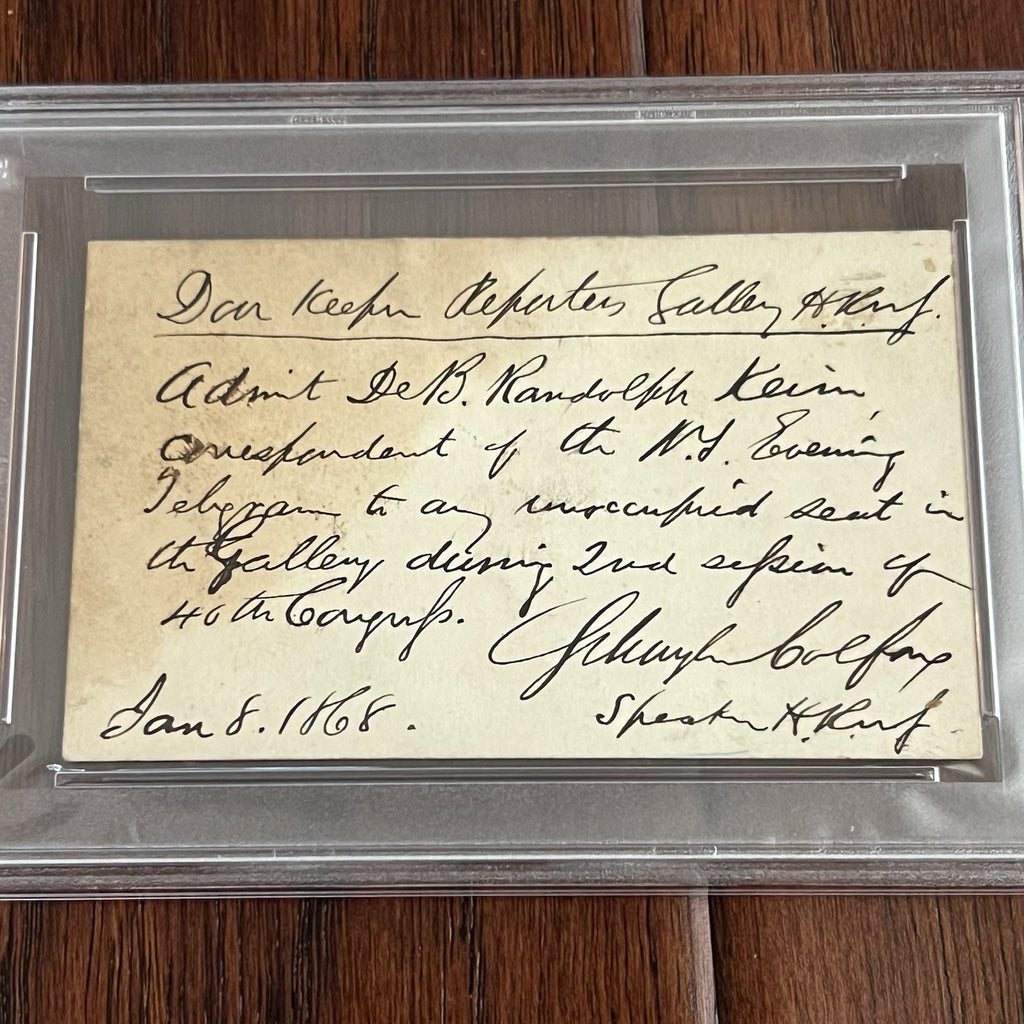 Door Keeper Reporters Gallery H. Reps.
Admit DeB. Randolph Keim,
correspondent of the N.Y. Evening
Telegram to any unoccupied seat in
the Gallery during 2nd session of
40th Congress.
Schuyler Colfax
Jan 8. 1868.
Speaker H. Reps.